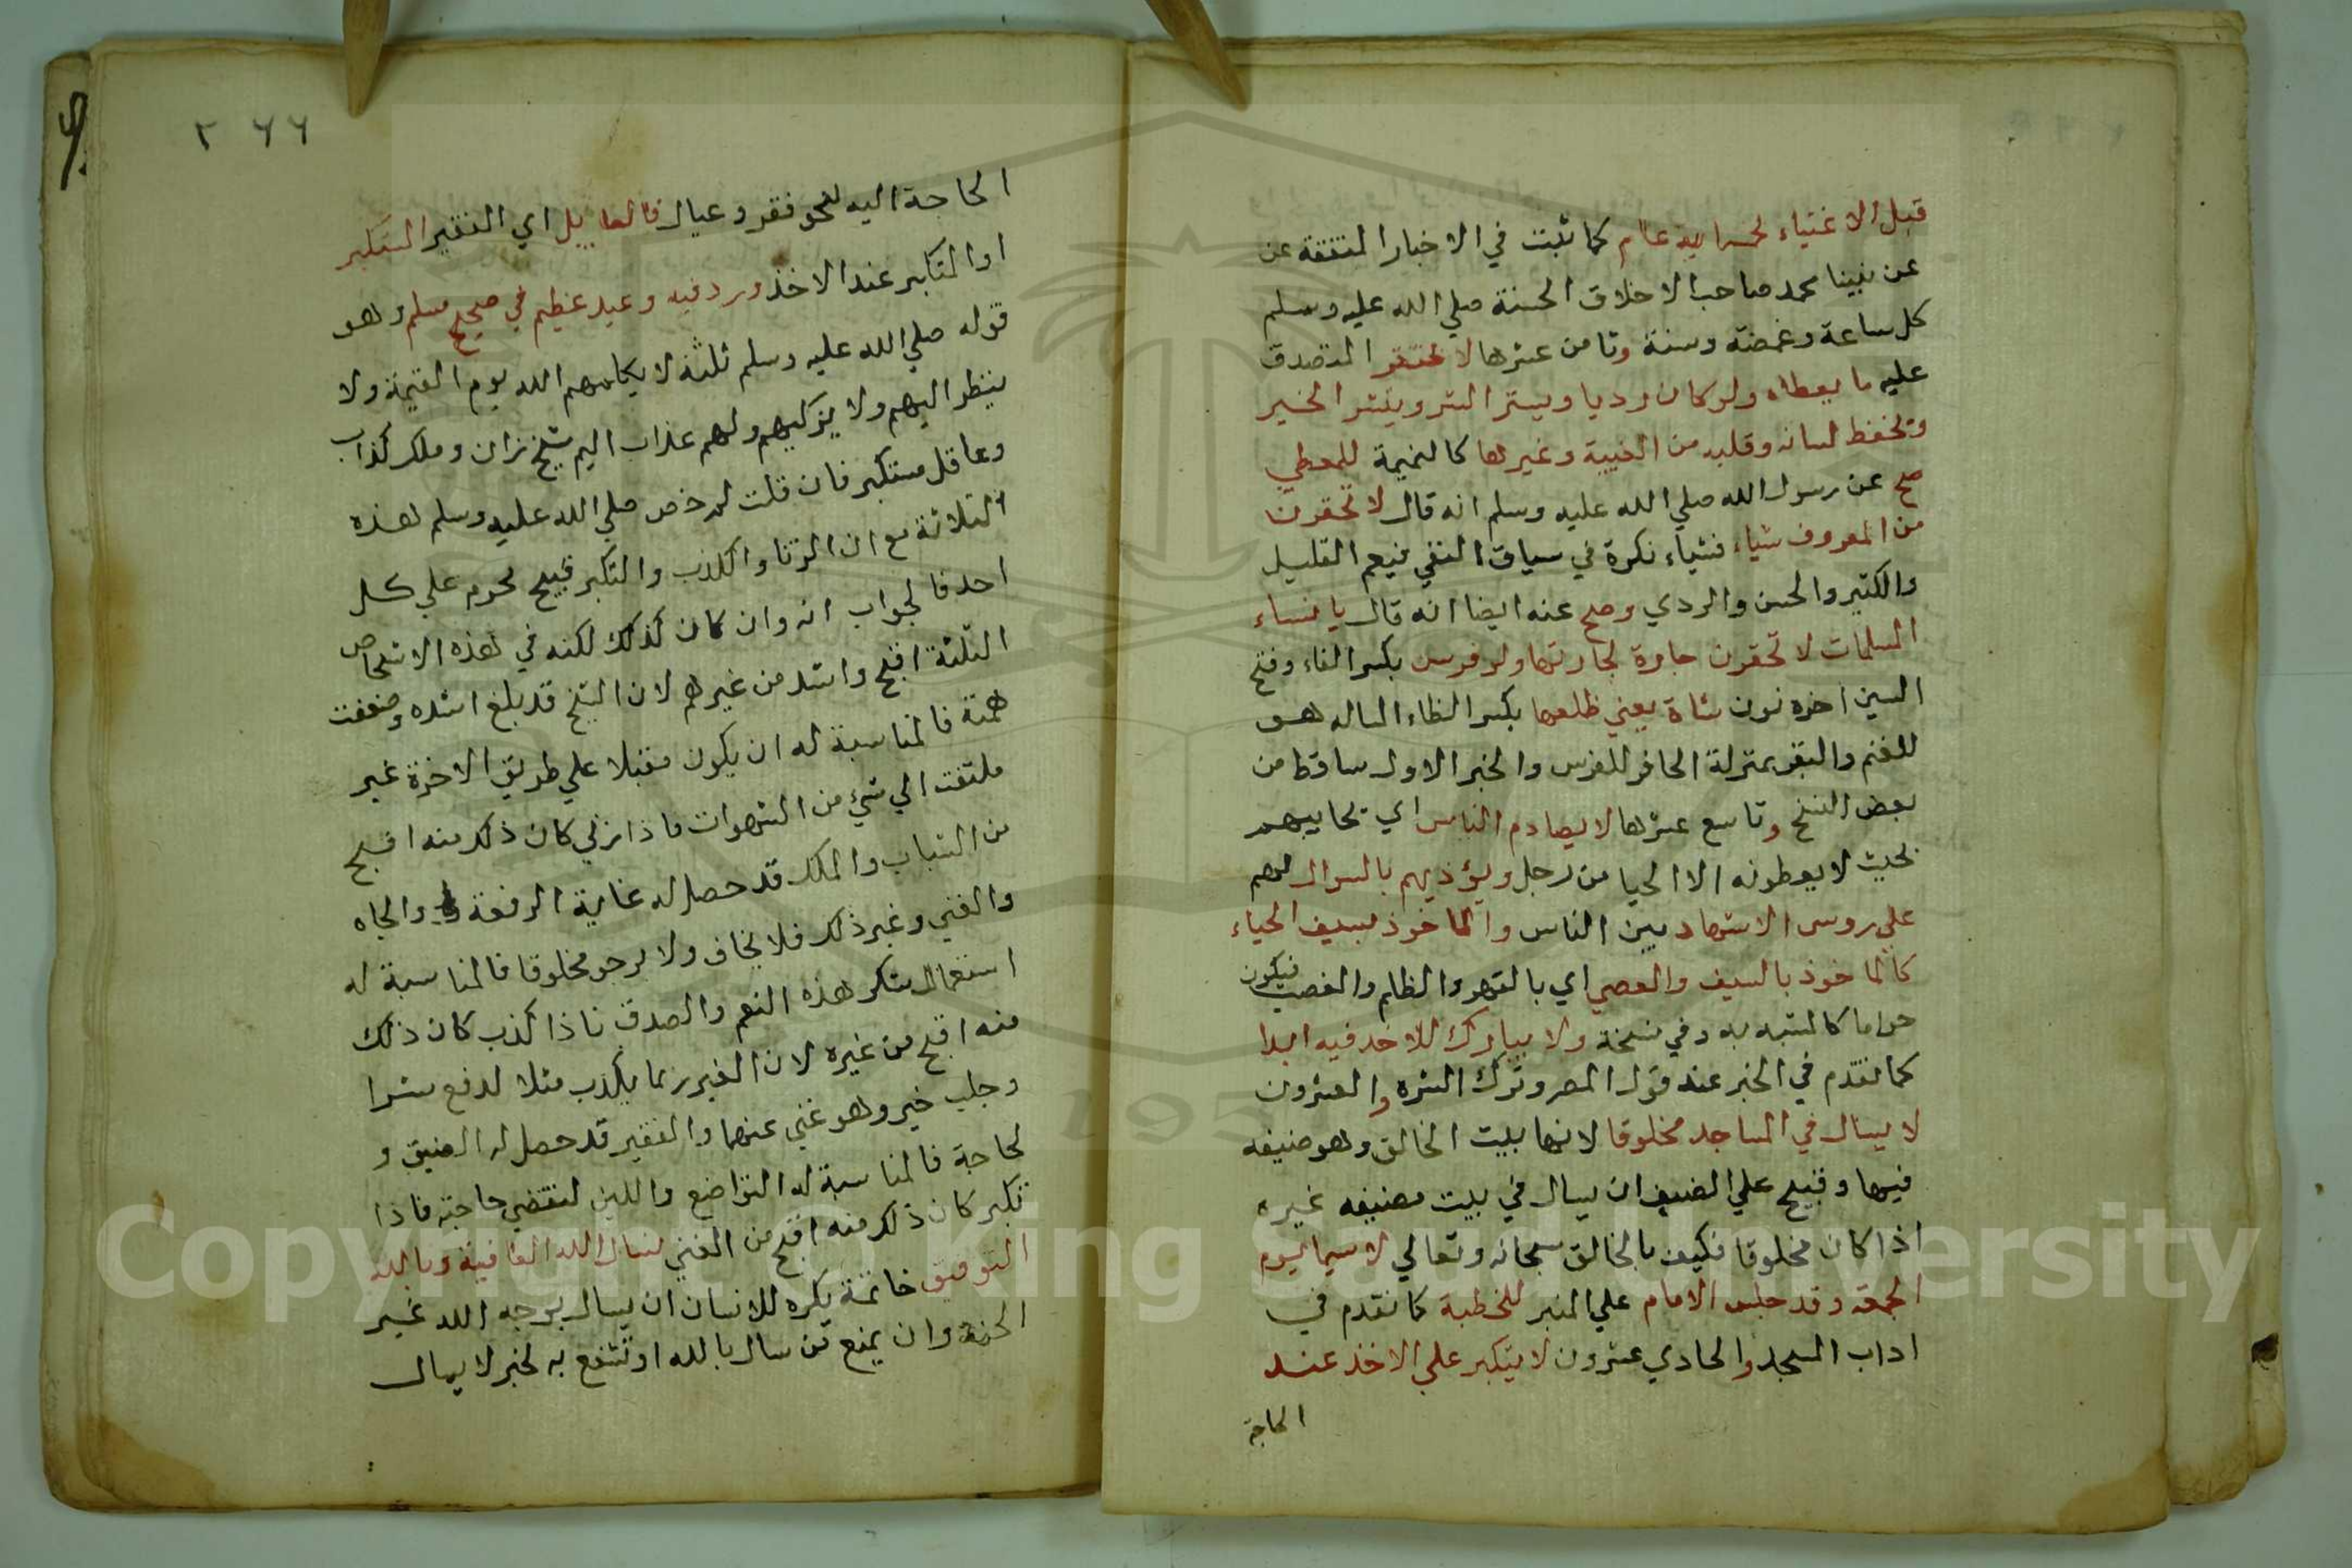 قبل الاغنياء لخمسماية عام كما ثبت في الاخبار المتفقة عن
عن نبينا محمد صاحب الاخلاق الحسنة صلي الله عليه وسلم
كل ساعة وغمضة وسنة وثامن عشرها لا يحتقر المتصدق
عليه ما يعطاه ولو كان رديا ويستر الستر وينشر الخير
ويحفظ لسانه وقلبه من الغيبة وغيرها كالنميمة للمعطي
صح عن رسول الله صلي الله عليه وسلم انه قال لا تحقرن
من المعروف شياء فشياء نكرة في سياق النفي فيعم القليل
والكثير والحسن والردي وصح عنه ايضا انه قال يا نساء
المسلمات لا تحقرن جارة لجارتها ولو فرسن بكسر الفاء وفتح
السين اخره نون شاة يعني ظلعها بكسر الظاء المساله هو
للغنم والبقر بمنزلة الحافر للفرس والخبر الاول ساقط من
بعض النسخ وتاسع عشرها لا يصادم الناس اي يحابيهم
بحيث لا يعطونه الا الحيا من رجل ويؤذيهم بالسوال لهم
علي روس الاشهاد بين الناس والماخوذ بسيف الحياء
كالماخوذ بالسيف والعصي اي بالقهر والظلم والغصب فيكون
حراما كالمشبه به وفي نسخة ولا يبارك للاخذ فيه ابدا
كما تقدم في الخبر عند قول المصر وترك الشره والعشرون
لا يسال في المساجد مخلوقا لانها بيت الخالق وهو ضيفه
فيها وقبيح علي الضيف ان يسال في بيت مضيفه غيره
اذا كان مخلوقا فكيف بالخالق سبحانه وتعالي لا سيما يوم
الجمعة وقد جلس الامام علي المنبر للخطبة كما تقدم في
اداب المسجد والحادي عشرون لا يتكبر علي الاخذ عند
الحاجة
٢٦٦
الحاجة اليه لنحو فقر وعيال فالعايل اي الفقير المتكبر
او المتكابر عند الاخذ ورد فيه وعيد عظيم في صحيح مسلم وهو
قوله صلي الله عليه وسلم ثلثة لا يكلمهم الله يوم القيمة ولا
ينظر اليهم ولا يزكيهم ولهم عذاب اليم شيخ زان وملك كذاب
وعاقل مستكبر فان قلت لم خص صلي الله عليه وسلم هذه
الثلاثة مع ان الزنا والكذب والتكبر قبيح محرم علي كل
احد فالجواب انه وان كان كذلك لكنه في هذه الاشخاص
الثلثة اقبح واشد من غيرهم لان الشيخ قد بلغ اشده وضعفت
همته فالمناسبة له ان يكون مقبلا علي طريق الاخرة غير
ملتفت الي شيء من الشهوات فاذا زني كان ذلك منه اقبح
من الشباب والملك قد حصل له غاية الرفعة والجاه
والغني وغير ذلك فلا يخاف ولا يرجو مخلوقا فالمناسبة له
استعمال شكر هذه النعم والصدق فاذا كذب كان ذلك
منه اقبح من غيره لان الغير ربما يكذب مثلا لدفع شرا
وجلب خير وهو غني عنهما والفقير قد حصل له الضيق و
لحاجة فالمناسبة له التواضع واللين لتقضي حاجته فاذا
تكبر كان ذلك منه اقبح من الغني نسال الله العافية وبالله
التوفيق خاتمة يكره للانسان ان يسال بوجه الله غير
الجنة وان يمنع من سال بالله او تشفع به لخبر لا يسال
Copyright © King Saud University
195